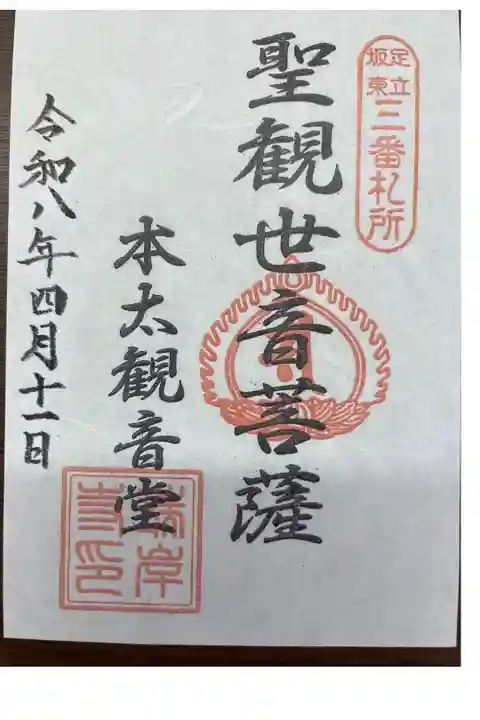 足立
坂東
三番札所
聖観世音菩薩
本太観音堂
令和八年四月十一日